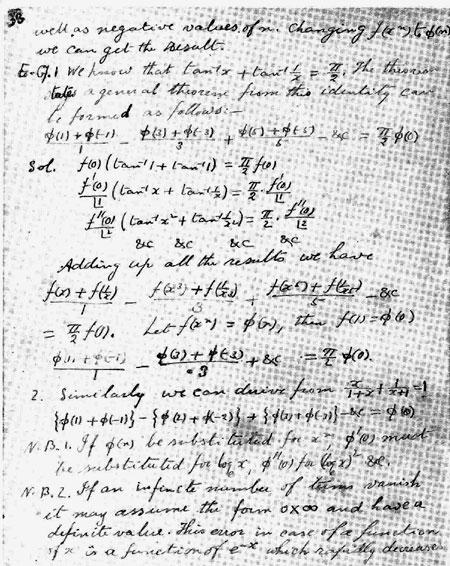 38
well as negative values of n. Changing f(xⁿ) to φ(n)
we can get the result.
E.g. 1 We know that tan⁻¹x + tan⁻¹ 1/x = π/2. The theorem
a general theorem from this identity can
be formed as follows:—
(φ(1) + φ(-1))/1 - (φ(3) + φ(-3))/3 + (φ(5) + φ(-5))/5 - &c = π/2 φ(0)
Sol. f(0) (tan⁻¹1 + tan⁻¹1) = π/2 f(0)
f'(0)/⌊1 (tan⁻¹x + tan⁻¹ 1/x) = π/2 · f'(0)/⌊1
f''(0)/⌊2 (tan⁻¹x² + tan⁻¹ 1/x²) = π/2 · f''(0)/⌊2
&c &c &c &c
Adding up all the results we have
(f(x) + f(1/x))/1 - (f(x³) + f(1/x³))/3 + (f(x⁵) + f(1/x⁵))/5 - &c
= π/2 f(1). Let f(xⁿ) = φ(n), then f(1) = φ(0)
(φ(1) + φ(-1))/1 - (φ(3) + φ(-3))/3 + &c = π/2 φ(0).
2. Similarly we can derive from x/(1+x) + 1/(x+1) = 1
{φ(1) + φ(-1)} - {φ(2) + φ(-2)} + {φ(3) + φ(-3)} - &c = φ(0)
N.B. 1. If φ(n) be substituted for xⁿ, φ'(0) must
be substituted for log x, φ''(0) for (log x)² &c.
N.B. 2. If an infinite number of terms vanish
it may assume the form 0×∞ and have a
definite value. This error in case of a function
of x is a function of e⁻ˣ which rapidly decreases